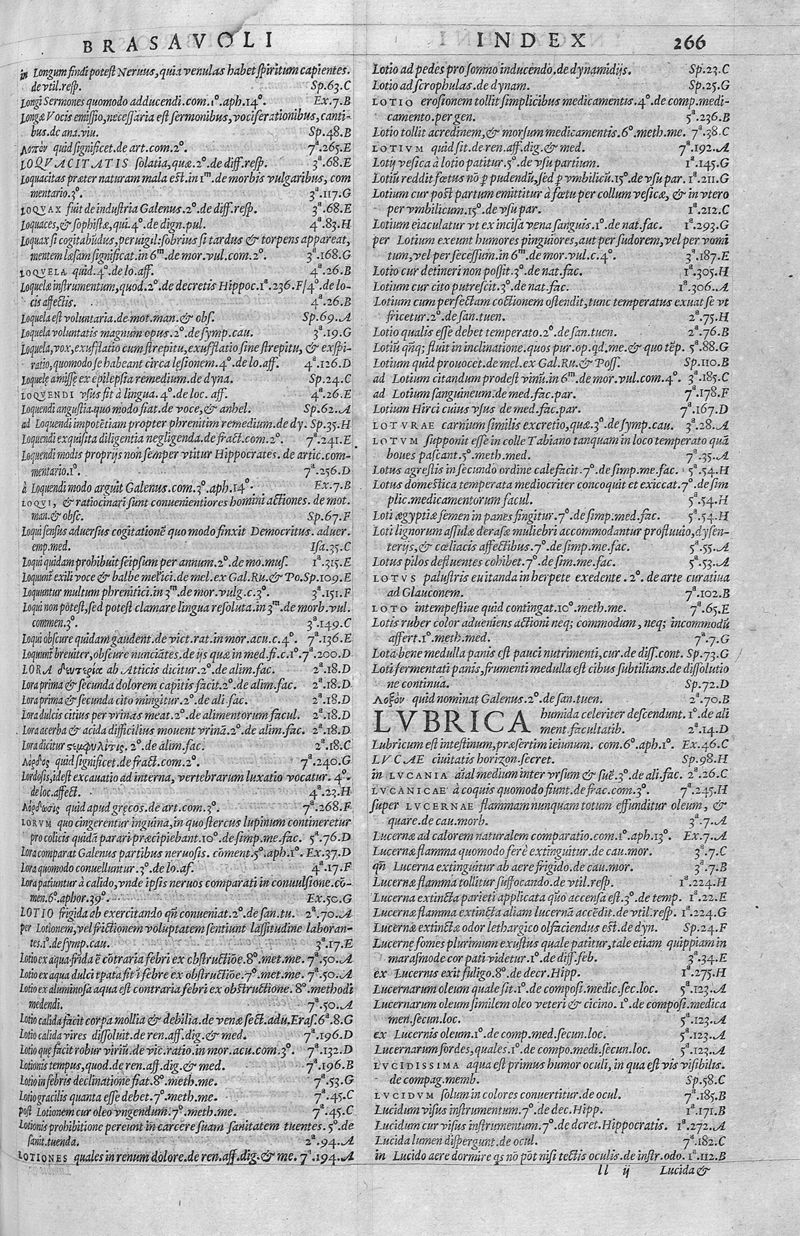 BRASAVOLI INDEX 266
in Longum findi potest Neruus, quia venulas habet spiritum capientes.
de vtil.resp. Sp.63.C
Longi Sermones quomodo adducendi.com.1º.aph.14º. Ex.7.B
Longæ Vocis emissio, necessaria est sermonibus, vociferationibus, canti-
bus.de ana.viu. Sp.48.B
quid significet.de art.com.2º. 7ª.265.E
LOQVACITATIS solatia, quæ.2º.de diff.resp. 3ª.68.E
Loquacitas præter naturam mala est.in 1m.de morbis vulgaribus, com
mentario.3º. 3ª.117.G
LOQVAX fuit de industria Galenus.2º.de diff.resp. 3ª.68.E
Loquaces, & sophistæ, qui.4º.de dign.pul. 4ª.83.H
Loquax si cogitabūdus, peruigil: sobrius si tardus & torpens appareat,
mentem læsam significat.in 6m.de mor.vul.com.2º. 3ª.168.G
LOQVELA quid.4º.de lo.aff. 4ª.26.B
Loquelæ instrumentum, quod.2º.de decretis Hippoc.1ª.236.F/4º.de lo-
cis affectis. 4ª.26.B
Loquela est voluntaria.de mot.man.& obs. Sp.69.A
Loquela voluntatis magnum opus.2º.de symp.cau. 3ª.19.G
Loquela, vox, exufflatio cum strepitu, exufflatio sine strepitu, & exspi-
ratio, quomodo se habeant circa lesionem.4º.de lo.aff. 4ª.126.D
Loquelę amissę ex epilepsia remedium.de dyna. Sp.24.C
LOQVENDI vsus fit à lingua.4º.de loc.aff. 4ª.26.E
Loquendi angustia quo modo fiat.de voce, & anhel. Sp.62.A
ad Loquendi impotētiam propter phrenitim remedium.de dy. Sp.35.H
Loquendi exquisita diligentia negligenda.de fract.com.2º. 7ª.241.E
Loquendi modis proprijs non semper vtitur Hippocrates.de artic.com-
mentario.1º. 7ª.256.D
à Loquendi modo arguit Galenus.com.3º.aph.14º. Ex.7.B
LOQVI, & ratiocinari sunt conuenientiores homini actiones.de mot.
man.& obsc. Sp.67.F
Loqui sensus aduersus cogitationē quo modo finxit Democritus.aduer.
emp.med. Isa.35.C
Loqui quidam prohibuit seipsum per annum.2º.de mo.mus. 1ª.315.E
Loquunt exili voce & balbe melici.de mel.ex Gal.Ru.& Po.Sp.109.E
Loquuntur multum phrenitici.in 3m.de mor.vulg.c.3º. 3ª.151.F
Loqui non potest, sed potest clamare lingua resoluta.in 3m.de morb.vul.
commen.3º. 3ª.149.C
Loqui obscure quidam gaudent.de vict.rat.in mor.acu.c.4º. 7ª.136.E
Loquunt breuiter, obscure nunciātes.de ijs quæ in med.fi.c.1º.7ª.200.D
LORA ab Atticis dicitur.2º.de alim.fac. 2ª.18.D
Lora prima & secunda dolorem capitis facit.2º.de alim.fac. 2ª.18.D
Lora prima & secunda cito mingitur.2º.de ali.fac. 2ª.18.D
Lora dulcis citius per vrinas meat.2º.de alimentorum facul. 2ª.18.D
Lora acerba & acida difficilius mouent vrinā.2º.de alim.fac. 2ª.18.D
Lora dicitur .2º.de alim.fac. 2ª.18.C
quid significet.de fract.com.2º. 7ª.240.G
Lordosis, idest excauatio ad interna, vertebrarum luxatio vocatur. 4º.
de loc.affect. 4ª.23.H
quid apud gręcos.de art.com.3º. 7ª.268.F
LORVM quo cingerentur inguina, in quo stercus lupinum contineretur
pro colicis quidā parari præcipiebant.10º.de simp.me.fac. 5ª.76.D
Lora comparat Galenus partibus neruosis.cōment.5º.aph.1º.Ex.37.D
Lora quomodo conuelluntur.3º.de lo.af. 4ª.17.F
Lora patiuntur à calido, vnde ipsis neruos comparati in conuulsione.cō-
men.6º.aphor.39º. Ex.50.G
LOTIO frigida ab exercitando qñ conueniat.2º.de san.tu. 2ª.70.A
per Lotionem, vel frictionem voluptatem sentiunt lassitudine laboran-
tes.1º.de symp.cau. 3ª.17.E
Lotio ex aqua frida ē cōtraria febri ex obstructiōe.8º.met.me. 7ª.50.A
Lotio ex aqua dulci tpata fit ī febre ex obstructiōe.7º.met.me. 7ª.50.A
Lotio ex aluminosa aqua est contraria febri ex obstructione. 8º.methodi
medendi. 7ª.50.A
Lotio calida facit corpa mollia & debilia.de venæ sect.adu.Eras.6ª.8.G
Lotio calida vires dissoluit.de ren.aff.dig.& med. 7ª.196.D
Lotio quę facit robur viriū.de vic.ratio.in mor.acu.com.3º. 7ª.132.D
Lotionis tempus, quod.de ren.aff.dig.& med. 7ª.196.B
Lotio in febris declinatione fiat.8º.meth.me. 7ª.53.G
Lotio gracilis quanta esse debet.7º.meth.me. 7ª.45.C
post Lotionem cur oleo vngendum.7º.meth.me. 7ª.45.C
Lotionis prohibitione pereunt in carcere suam sanitatem tuentes. 5º.de
sanit.tuenda. 2ª.94.A
LOTIONES quales in renum dolore.de ren.aff.dig.& me. 7ª.194.A
Lotio ad pedes pro somno inducendo.de dynamidijs. Sp.23.C
Lotio ad scrophulas.de dynam. Sp.25.G
LOTIO erosionem tollit simplicibus medicamentis.4º.de comp.medi-
camento.per gen. 5ª.236.B
Lotio tollit acredinem, & morsum medicamentis.6º.meth.me. 7ª.38.C
LOTIVM quid sit.de ren.aff.dig.& med. 7ª.192.A
Lotij vesica à lotio patitur.5º.de vsu partium. 1ª.145.G
Lotiū reddit fœtus nō p pudendū, sed p vmbilicū.15º.de vsu par.1ª.211.G
Lotium cur post partum emittitur à fœtu per collum vesicæ, & in vtero
per vmbilicum.15º.de vsu par. 1ª.212.C
Lotium eiaculatur vt ex incisa vena sanguis.1º.de nat.fac. 1ª.293.G
per Lotium exeunt humores pinguiores, aut per sudorem, vel per vomi
tum, vel per secessum.in 6m.de mor.vul.c.4º. 3ª.187.E
Lotio cur detineri non possit.3º.de nat.fac. 1ª.305.H
Lotium cur cito putrescit.3º.de nat.fac. 1ª.306.A
Lotium cum perfectam coctionem ostendit, tunc temperatus exuat se vt
fricetur.2º.de san.tuen. 2ª.75.H
Lotio qualis esse debet temperato.2º.de san.tuen. 2ª.76.B
Lotiū qñq; fluit in inclinatione.quos pur.op.qd.me.& quo tēp. 5ª.88.G
Lotium quid prouocet.de mel.ex Gal.Ru.& Poss. Sp.110.B
ad Lotium citandum prodest vinū.in 6m.de mor.vul.com.4º. 3ª.185.C
ad Lotium sanguineum.de med.fac.par. 7ª.178.F
Lotium Hirci cuius vsus de med.fac.par. 7ª.167.D
LOTVRAE carnium similis excretio, quæ.3º.de symp.cau. 3ª.28.A
LOTVM supponit esse in colle Tabiano tanquam in loco temperato quā
boues pascant.5º.meth.med. 7ª.35.A
Lotus agrestis in secundo ordine calefacit.7º.de simp.me.fac. 5ª.54.H
Lotus domestica temperata mediocriter concoquit et exiccat.7º.de sim
plic.medicamentorum facul. 5ª.54.H
Loti ægyptiæ semen in panes fingitur.7º.de simp.med.fac. 5ª.54.H
Loti lignorum assulæ derasæ muliebri accommodantur profluuio, dysen-
terijs, & cœliacis affectibus.7º.de simp.me.fac. 5ª.55.A
Lotus pilos defluentes cohibet.7º.de sim.me.fac. 5ª.53.A
LOTVS palustris euitanda in herpete exedente. 2º.de arte curatiua
ad Glauconem. 7ª.102.B
LOTO intempestiue quid contingat.10º.meth.me. 7ª.65.E
Lotis ruber color adueniens actioni neq; commodum, neq; incommodū
affert.1º.meth.med. 7ª.7.G
Lota bene medulla panis est pauci nutrimenti, cur.de diff.cont. Sp.73.G
Loti fermentati panis, frumenti medulla est cibus subtilians.de dissolutio
ne continua. Sp.72.D
quid nominat Galenus.2º.de san.tuen. 2ª.70.B
LVBRICA humida celeriter descendunt.1º.de ali
ment facultatib. 2ª.14.D
Lubricum est intestinum, præsertim ieiunum. com.6º.aph.1º. Ex.46.C
LVCAE ciuitatis horizon.secret. Sp.98.H
in LVCANIA aīal medium inter vrsum & suē.3º.de ali.fac. 2ª.26.C
LVCANICAE à coquis quomodo fiunt.de frac.com.3º. 7ª.245.H
super LVCERNAE flammam nunquam totum effunditur oleum, &
quare.de cau.morb. 3ª.7.A
Lucernæ ad calorem naturalem comparatio.com.1º.aph.13º. Ex.7.A
Lucernæ flamma quomodo ferè extinguitur.de cau.mor. 3ª.7.C
qñ Lucerna extinguitur ab aere frigido.de cau.mor. 3ª.7.B
Lucernæ flamma tollitur suffocando.de vtil.resp. 1ª.224.H
Lucerna extincta parieti applicata quō accensa est.3º.de temp. 1ª.22.E
Lucernæ flamma extincta aliam lucernā accēdit.de vtil.resp. 1ª.224.G
Lucernæ extinctæ odor lethargico olfaciendus est.de dyn. Sp.24.F
Lucernę fomes plurimum exustus quale patitur, tale etiam quippiam in
marasmode cor pati videtur.1º.de diff.feb. 3ª.34.E
ex Lucernis exit fuligo.8º.de decr.Hipp. 1ª.275.H
Lucernarum oleum quale sit.1º.de composi.medic.sec.loc. 5ª.123.A
Lucernarum oleum similem oleo veteri & cicino. 1º.de composi.medica
men.secun.loc. 5ª.123.A
ex Lucernis oleum.1º.de comp.med.secun.loc. 5ª.123.A
Lucernarum sordes, quales.1º.de compo.medi.secun.loc. 5ª.123.A
LVCIDISSIMA aqua est primus humor oculi, in qua est vis visibilis.
de compag.memb. Sp.58.C
LVCIDVM solum in colores conuertitur.de ocul. 7ª.185.B
Lucidum visus instrumentum.7º.de dec.Hipp. 1ª.171.B
Lucidum cur visus instrumentum.7º.de dcret.Hippocratis. 1ª.272.A
Lucida lumen dispergunt.de ocul. 7ª.182.C
in Lucido aere dormire qs nō pōt nisi tectis oculis.de instr.odo. 1ª.112.B
ll ij Lucida &